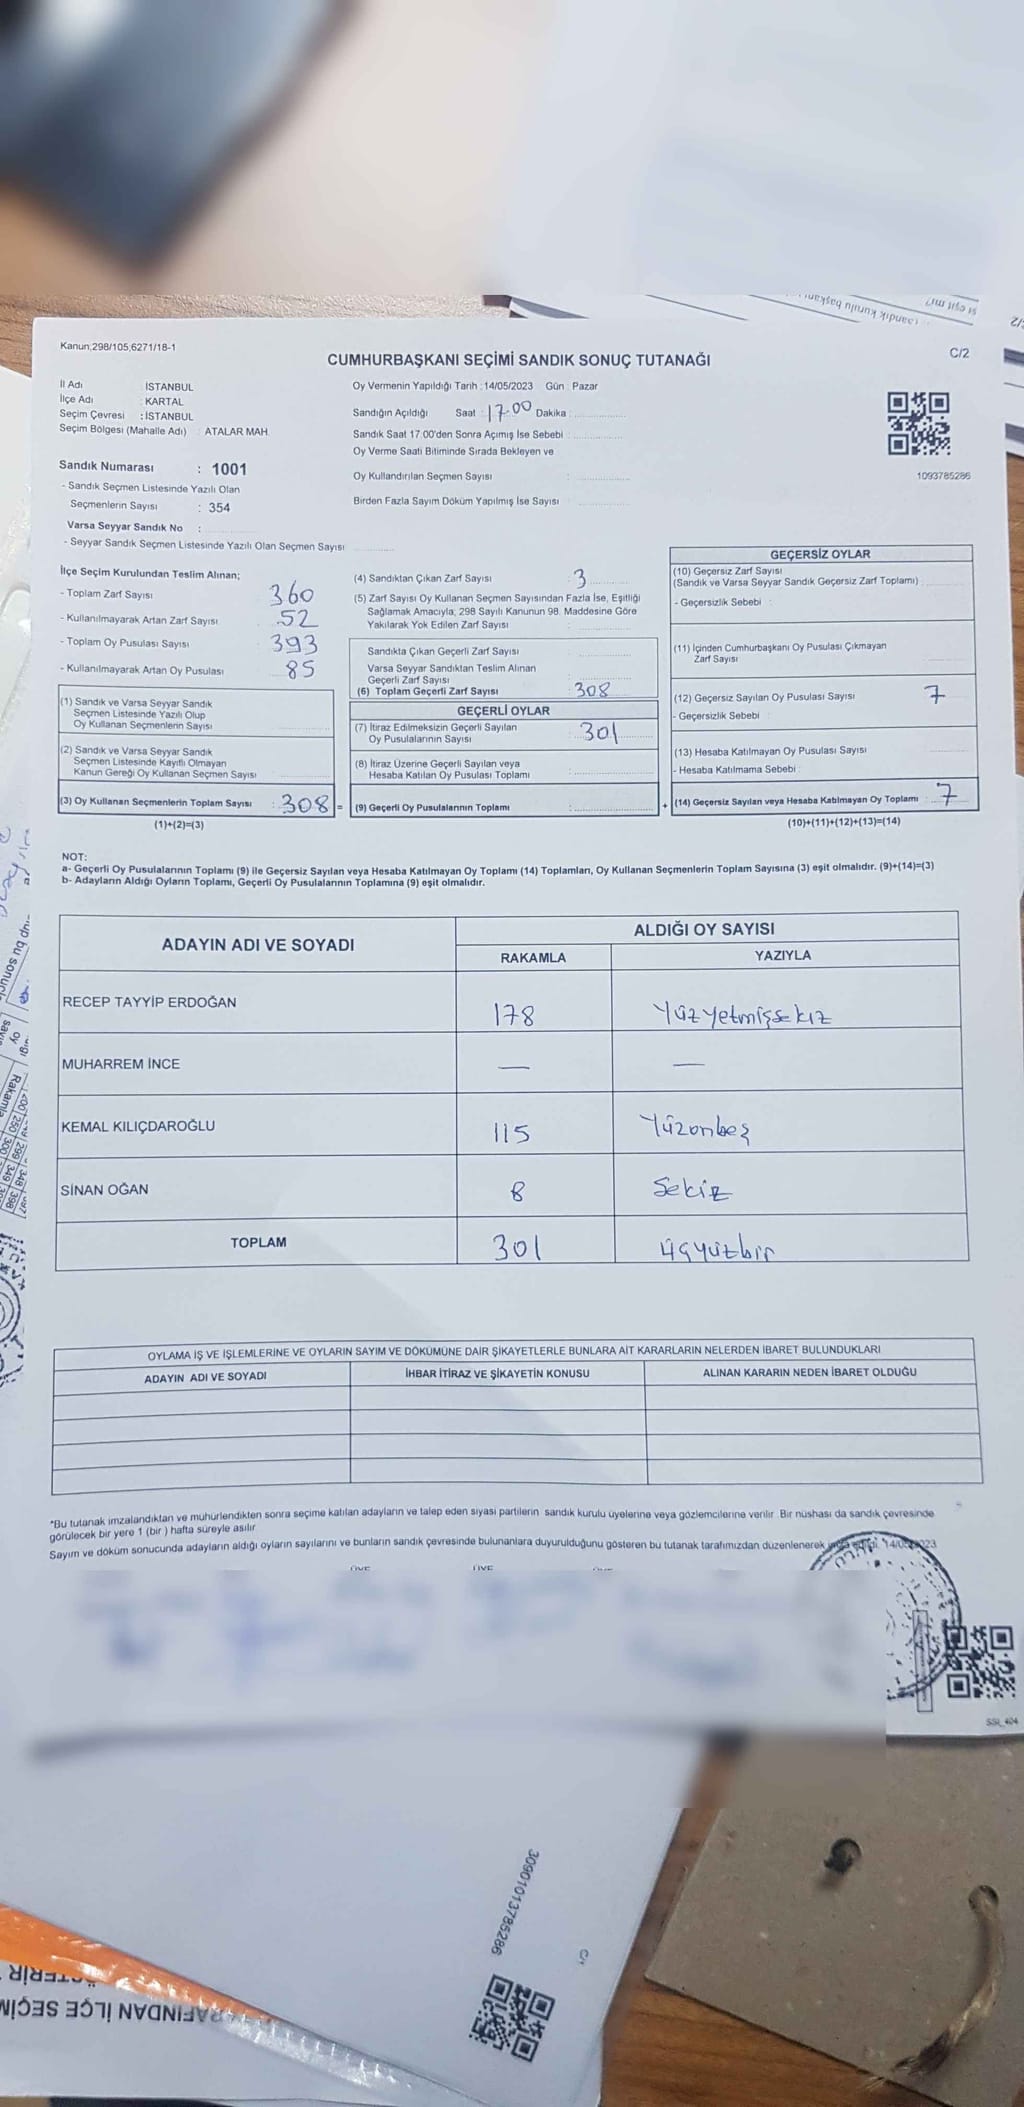 Kanun;298/105,6271/18-1
C/2
CUMHURBAŞKANI SEÇİMİ SANDIK SONUÇ TUTANAĞI
İl Adı : İSTANBUL
İlçe Adı : KARTAL
Seçim Çevresi : İSTANBUL
Seçim Bölgesi (Mahalle Adı) : ATALAR MAH.
Oy Vermenin Yapıldığı Tarih : 14/05/2023 Gün : Pazar
Sandığın Açıldığı Saat : 17.00 Dakika :
Sandık Saat 17.00'den Sonra Açımış İse Sebebi :
Oy Verme Saati Bitiminde Sırada Bekleyen ve
Oy Kullandırılan Seçmen Sayısı :
Birden Fazla Sayım Döküm Yapılmış İse Sayısı :
1093785286
Sandık Numarası : 1001
- Sandık Seçmen Listesinde Yazılı Olan
Seçmenlerin Sayısı : 354
Varsa Seyyar Sandık No :
- Seyyar Sandık Seçmen Listesinde Yazılı Olan Seçmen Sayısı
İlçe Seçim Kurulundan Teslim Alınan;
- Toplam Zarf Sayısı 360
- Kullanılmayarak Artan Zarf Sayısı 52
- Toplam Oy Pusulası Sayısı 393
- Kullanılmayarak Artan Oy Pusulası 85
(1) Sandık ve Varsa Seyyar Sandık
Seçmen Listesinde Yazılı Olup
Oy Kullanan Seçmenlerin Sayısı
(2) Sandık ve Varsa Seyyar Sandık
Seçmen Listesinde Kayıtlı Olmayan
Kanun Gereği Oy Kullanan Seçmen Sayısı
(3) Oy Kullanan Seçmenlerin Toplam Sayısı : 308 =
(1)+(2)=(3)
(4) Sandıktan Çıkan Zarf Sayısı : 3
(5) Zarf Sayısı Oy Kullanan Seçmen Sayısından Fazla İse, Eşitliği
Sağlamak Amacıyla; 298 Sayılı Kanunun 98. Maddesine Göre
Yakılarak Yok Edilen Zarf Sayısı :
Sandıkta Çıkan Geçerli Zarf Sayısı
Varsa Seyyar Sandıktan Teslim Alınan
Geçerli Zarf Sayısı
(6) Toplam Geçerli Zarf Sayısı : 308
GEÇERLİ OYLAR
(7) İtiraz Edilmeksizin Geçerli Sayılan
Oy Pusulalarının Sayısı : 301
(8) İtiraz Üzerine Geçerli Sayılan veya
Hesaba Katılan Oy Pusulası Toplamı :
(9) Geçerli Oy Pusulalarının Toplamı : +
GEÇERSİZ OYLAR
(10) Geçersiz Zarf Sayısı
(Sandık ve Varsa Seyyar Sandık Geçersiz Zarf Toplamı)
- Geçersizlik Sebebi :
(11) İçinden Cumhurbaşkanı Oy Pusulası Çıkmayan
Zarf Sayısı
(12) Geçersiz Sayılan Oy Pusulası Sayısı 7
- Geçersizlik Sebebi :
(13) Hesaba Katılmayan Oy Pusulası Sayısı
- Hesaba Katılmama Sebebi :
(14) Geçersiz Sayılan veya Hesaba Katılmayan Oy Toplamı : 7
(10)+(11)+(12)+(13)=(14)
NOT:
a- Geçerli Oy Pusulalarının Toplamı (9) ile Geçersiz Sayılan veya Hesaba Katılmayan Oy Toplamı (14) Toplamları, Oy Kullanan Seçmenlerin Toplam Sayısına (3) eşit olmalıdır. (9)+(14)=(3)
b- Adayların Aldığı Oyların Toplamı, Geçerli Oy Pusulalarının Toplamına (9) eşit olmalıdır.
ADAYIN ADI VE SOYADI
ALDIĞI OY SAYISI
RAKAMLA YAZIYLA
RECEP TAYYİP ERDOĞAN 178 Yüzyetmişsekiz
MUHARREM İNCE — —
KEMAL KILIÇDAROĞLU 115 Yüzonbeş
SİNAN OĞAN 8 Sekiz
TOPLAM 301 üçyüzbir
OYLAMA İŞ VE İŞLEMLERİNE VE OYLARIN SAYIM VE DÖKÜMÜNE DAİR ŞİKAYETLERLE BUNLARA AİT KARARLARIN NELERDEN İBARET BULUNDUKLARI
ADAYIN ADI VE SOYADI İHBAR İTİRAZ VE ŞİKAYETİN KONUSU ALINAN KARARIN NEDEN İBARET OLDUĞU
*Bu tutanak imzalandıktan ve mühürlendikten sonra seçime katılan adayların ve talep eden siyasi partilerin sandık kurulu üyelerine veya gözlemcilerine verilir. Bir nüshası da sandık çevresinde
görülecek bir yere 1 (bir ) hafta süreyle asılır.
Sayım ve döküm sonucunda adayların aldığı oyların sayılarını ve bunların sandık çevresinde bulunanlara duyurulduğunu gösteren bu tutanak tarafımızdan düzenlenerek
30901013785286
C/1
RAFINDAN İLÇE SEÇİM